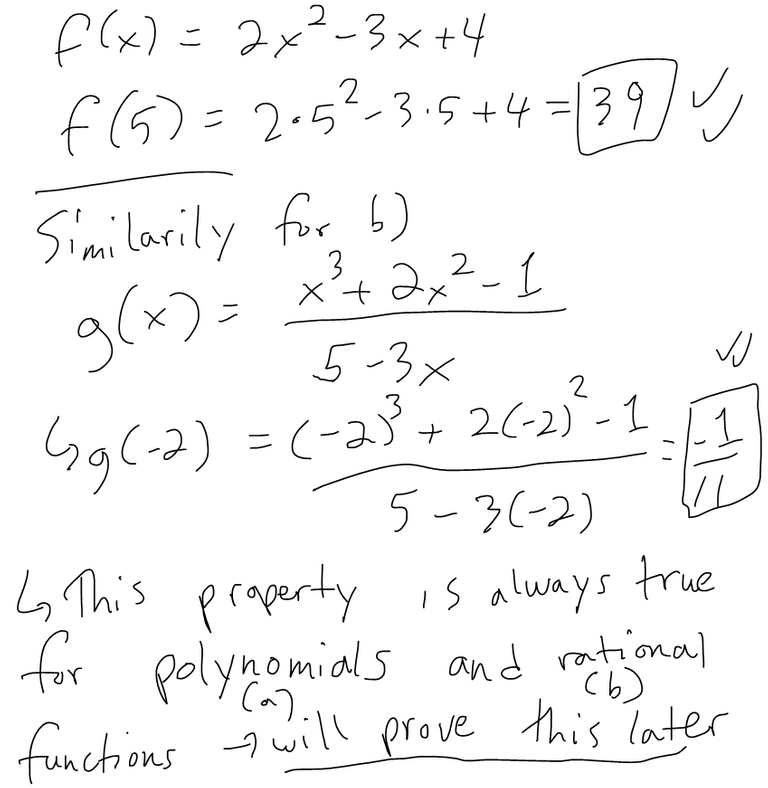 f(x) = 2x² - 3x + 4
f(5) = 2·5² - 3·5 + 4 = 39 ✓✓
Similarily for b)
g(x) = (x³ + 2x² - 1) / (5 - 3x)
↳ g(-2) = ((-2)³ + 2(-2)² - 1) / (5 - 3(-2)) = -1/11 ✓✓
↳ This property is always true
for polynomials (a) and rational (b)
functions → will prove this later